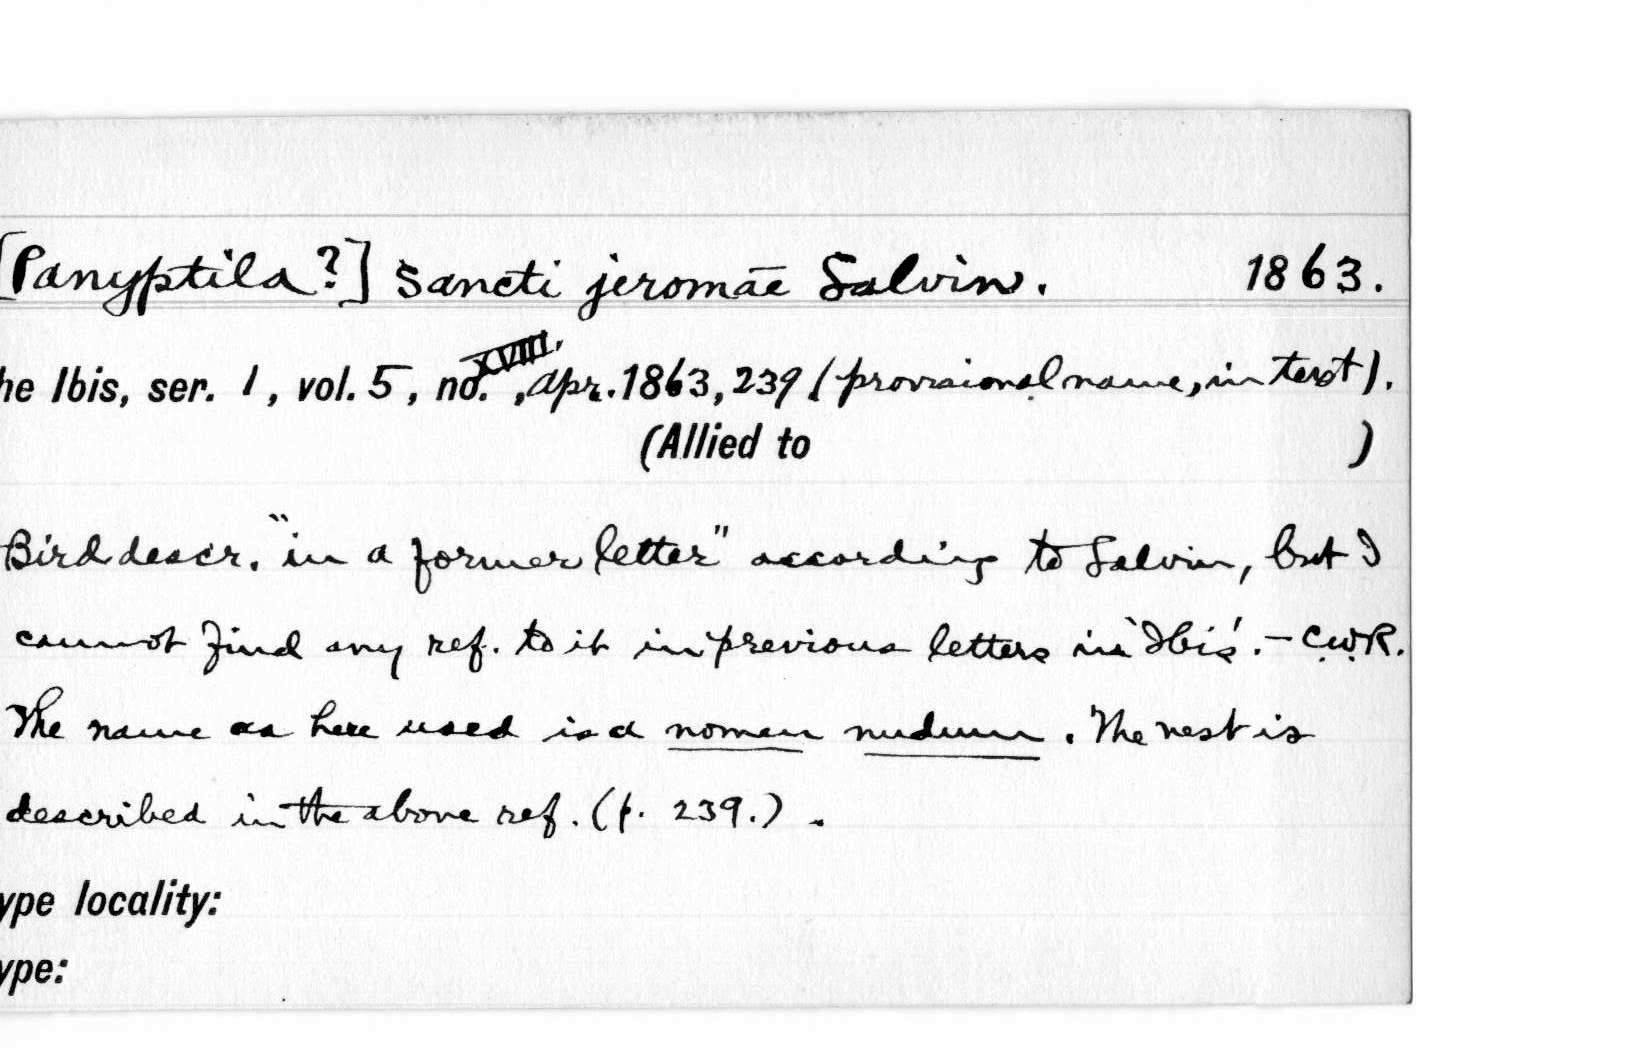 [Panyptila?] Sancti jeromae Salvin. 1863.
he Ibis, ser. 1, vol. 5, no. XVIII, Apr. 1863, 239 (provisional name, in text).
(Allied to )
Bird descr. "in a former letter" according to Salvin, but I
cannot find any ref. to it in previous letters in 'Ibis'. - C.W.R.
The name as here used is a nomen nudum. The nest is
described in the above ref. (p. 239.).
ype locality:
ype: